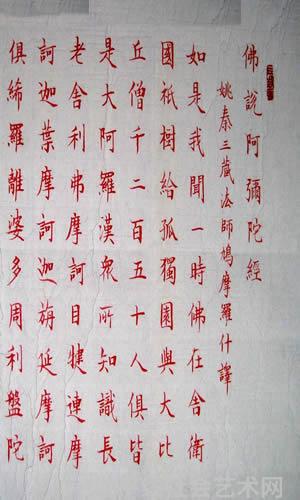 佛說阿彌陀經
姚秦三藏法師鳩摩羅什譯
如是我聞一時佛在舍衛
國祇樹給孤獨園與大比
丘僧千二百五十人俱皆
是大阿羅漢眾所知識長
老舍利弗摩訶目犍連摩
訶迦葉摩訶迦旃延摩訶
俱絺羅離婆多周利盤陀
艺术网